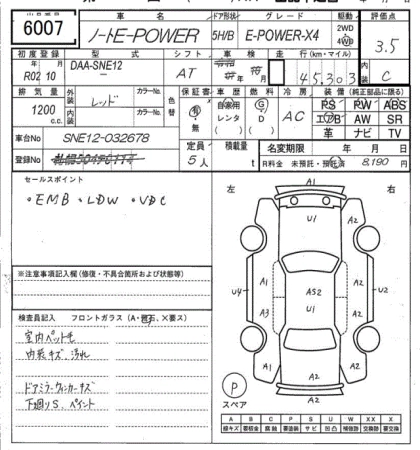 6007
車名
ノートE-POWER
ドア形状
5H/B
グレード
E-POWER-X4
駆動
2WD
4WD
評価点
3.5
内装
C
初度登録
年 月
R02 10
型式
DAA-SNE12
シフト
AT
車検
年 月
走行 (km・マイル)
45,303
排気量
1200
c.c.
外装
カラーNo.
レッド
内装
カラーNo.
色替
保証書
有
無
車歴
自家用
レンタ
( )
燃料
G
D
( )
冷房
AC
装備 (純正部品に限る)
PS PW ABS
エアB AW SR
革 ナビ TV
車台No
SNE12-032678
登録No
定員
5人
積載量
t
名変期限 年 月 日
R料金 未預託・預託済 8,190 円
セールスポイント
・EMB ・LDW ・VDC
※注意事項記入欄(修復・不具合箇所および状態等)
検査員記入 フロントガラス(A・飛石、×要ス)
室内ペット毛
内装キズ、汚れ
ドアミラーウィンカーキズ
下廻りS、ペイント
左 右
A1
U1
A1 A2
U4 AS2 U2
A3 U1 A1
A2 A2
A2
P
スペア
A B C P S U W X XX
線キズ 腐蝕 サビ 凹凸 補修跡 交換跡